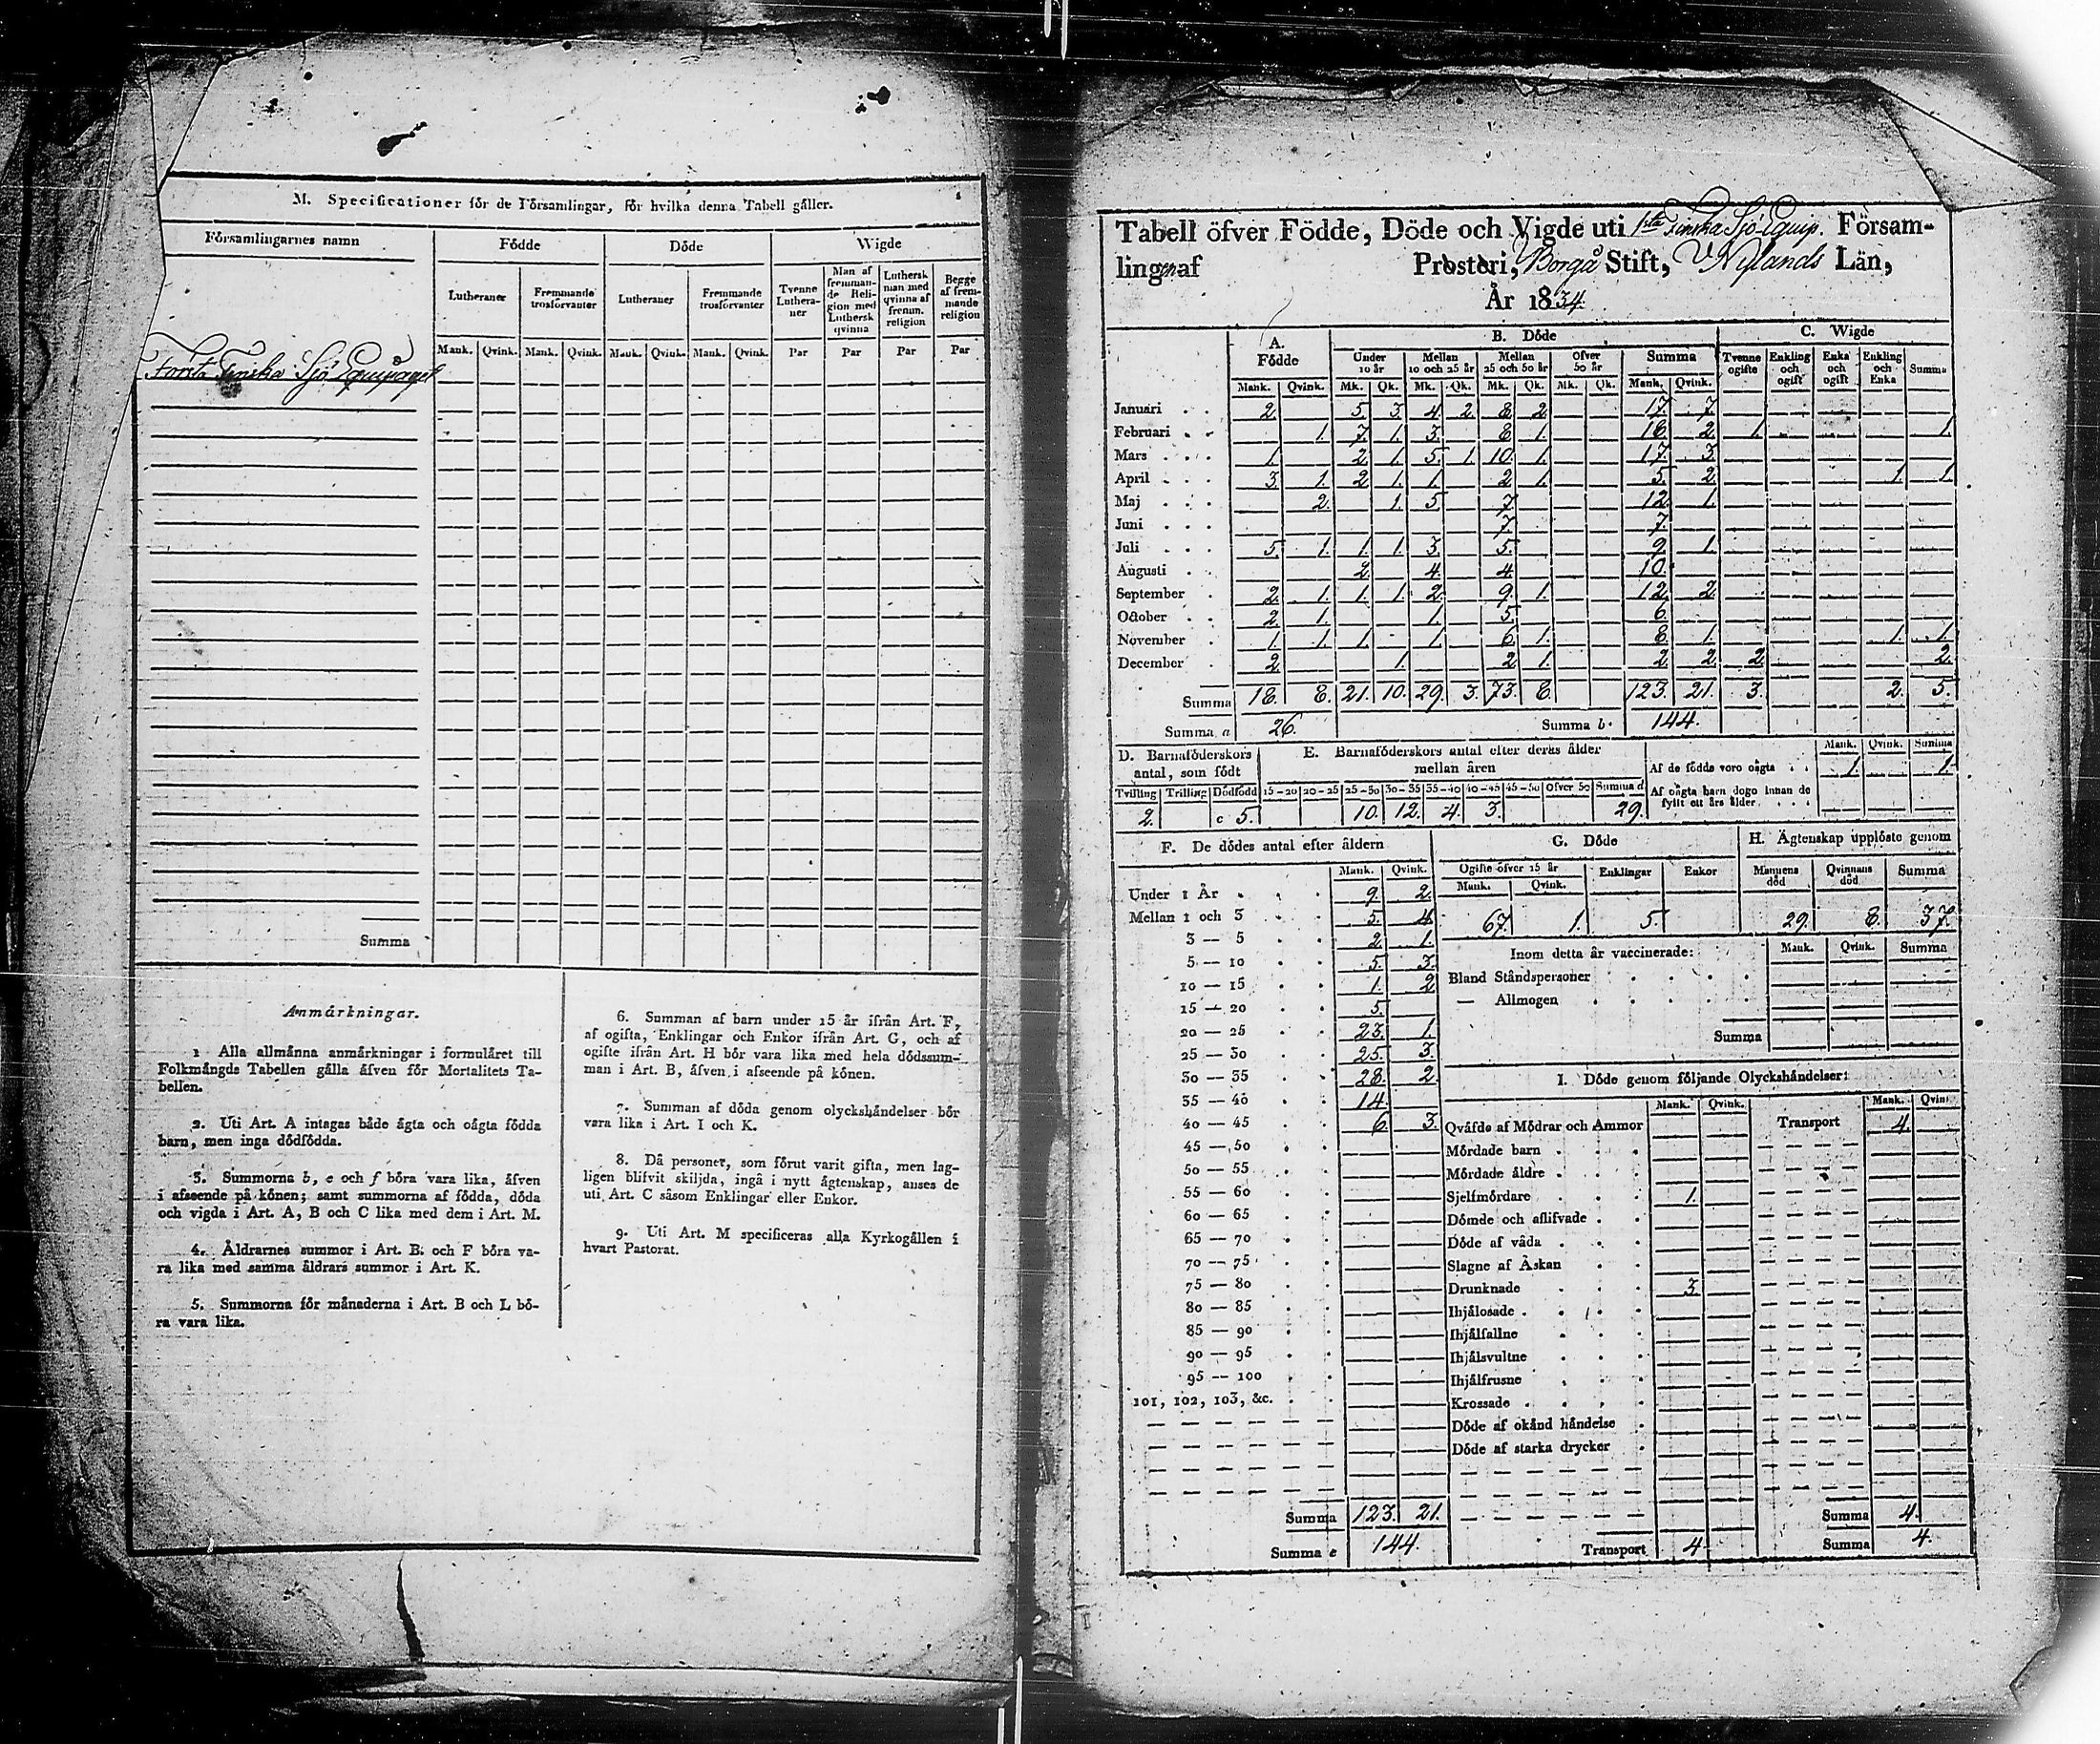 M. Specificationer för de Församlingar, för hvilka denna Tabell gäller.
Församlingarnes namn Födde Döde Wigde
Lutheraner Fremmande trosförvanter Lutheraner Fremmande trosförvanter Tvenne Lutheraner Man af fremmande Religion med Luthersk qvinna Luthersk man med qvinna af fremm. religion Begge af fremmande religion
Mank. Qvink. Mank. Qvink. Mank. Qvink. Mank. Qvink. Par Par Par Par
Första Finska Sjö Equipaget
Summa
Anmärkningar.
1 Alla allmänna anmärkningar i formuläret till
Folkmängds Tabellen gälla äfven för Mortalitets Ta-
bellen.
2. Uti Art. A intagas både ägta och oägta födda
barn, men inga dödfödda.
3. Summorna b, e och f böra vara lika, äfven
i afseende på könen; samt summorna af födda, döda
och vigda i Art. A, B och C lika med dem i Art. M.
4. Åldrarnes summor i Art. B. och F böra va-
ra lika med samma åldrars summor i Art. K.
5. Summorna för månaderna i Art. B och L bö-
ra vara lika.
6. Summan af barn under 15 år ifrån Art. F,
af ogifta, Enklingar och Enkor ifrån Art. G, och af
ogifte ifrån Art. H bör vara lika med hela dödssum-
man i Art. B, äfven i afseende på könen.
7. Summan af döda genom olyckshändelser bör
vara lika i Art. I och K.
8. Då personer, som förut varit gifta, men lag-
ligen blifvit skiljda, ingå i nytt ägtenskap, anses de
uti Art. C såsom Enklingar eller Enkor.
9. Uti Art. M specificeras alla Kyrkogällen i
hvart Pastorat.
Tabell öfver Födde, Döde och Vigde uti 1sta Finska Sjö Equip. Försam-
lingen af Prosteri, Borgå Stift, Nylands Län,
År 1834.
A. Födde B. Döde C. Wigde
Under 10 år Mellan 10 och 25 år Mellan 25 och 50 år Öfver 50 år Summa Tvenne ogifte Enkling och ogift Enka och ogift Enkling och Enka Summa
Mank. Qvink. Mk. Qk. Mk. Qk. Mk. Qk. Mk. Qk. Mank. Qvink.
Januari 2. 5. 3. 4. 2. 8. 2. 17. 7.
Februari 1. 7. 1. 3. 8. 1. 18. 2. 1. 1.
Mars 1. 2. 1. 5. 1. 10. 1. 17. 3.
April 3. 1. 2. 1. 1. 2. 1. 5. 2. 1. 1.
Maj 2. 1. 5. 7. 12. 1.
Juni 7. 7.
Juli 5. 1. 1. 1. 3. 5. 9. 1.
Augusti 2. 4. 4. 10.
September 2. 1. 1. 1. 2. 9. 1. 12. 2.
October 2. 1. 1. 5. 6.
November 1. 1. 1. 1. 6. 1. 8. 1. 1. 1.
December 2. 1. 2. 1. 2. 2. 2. 2.
Summa 18. 8. 21. 10. 29. 3. 73. 8. 123. 21. 3. 2. 5.
Summa a 26. Summa b. 144.
D. Barnaföderskors antal, som födt
Tvilling Trilling Dödfödd
2. c 5.
E. Barnaföderskors antal efter deras ålder mellan åren
15-20 20-25 25-30 30-35 35-40 40-45 45-50 Öfver 50 Summa d
10. 12. 4. 3. 29.
Mank. Qvink. Summa
Af de födda voro oägta 1. 1.
Af oägta barn dogo innan de
fyllt ett års ålder
F. De dödes antal efter åldern
Mank. Qvink.
Under 1 År 9. 2.
Mellan 1 och 3 5. 4.
3 — 5 2. 1.
5 — 10 5. 3.
10 — 15 1. 2.
15 — 20 5.
20 — 25 23. 1.
25 — 30 25. 3.
30 — 35 28. 2.
35 — 40 14.
40 — 45 6. 3.
45 — 50
50 — 55
55 — 60
60 — 65
65 — 70
70 — 75
75 — 80
80 — 85
85 — 90
90 — 95
95 — 100
101, 102, 103, &c.
Summa 123. 21.
Summa e 144.
G. Döde
Ogifte öfver 15 år Enklingar Enkor
Mank. Qvink.
67. 1. 5.
H. Ägtenskap upplöste genom
Mannens död Qvinnans död Summa
29. 8. 37.
Inom detta år vaccinerade: Mank. Qvink. Summa
Bland Ståndspersoner
— Allmogen
Summa
I. Döde genom följande Olyckshändelser:
Mank. Qvink. Mank. Qvin.
Qväfde af Mödrar och Ammor Transport 4.
Mördade barn
Mördade äldre
Sjelfmördare 1.
Dömde och aflifvade
Döde af våda
Slagne af Åskan
Drunknade 3
Ihjälosade
Ihjälfallne
Ihjälsvultne
Ihjälfrusne
Krossade
Döde af okänd händelse
Döde af starka drycker
Summa 4.
Transport 4 Summa 4.